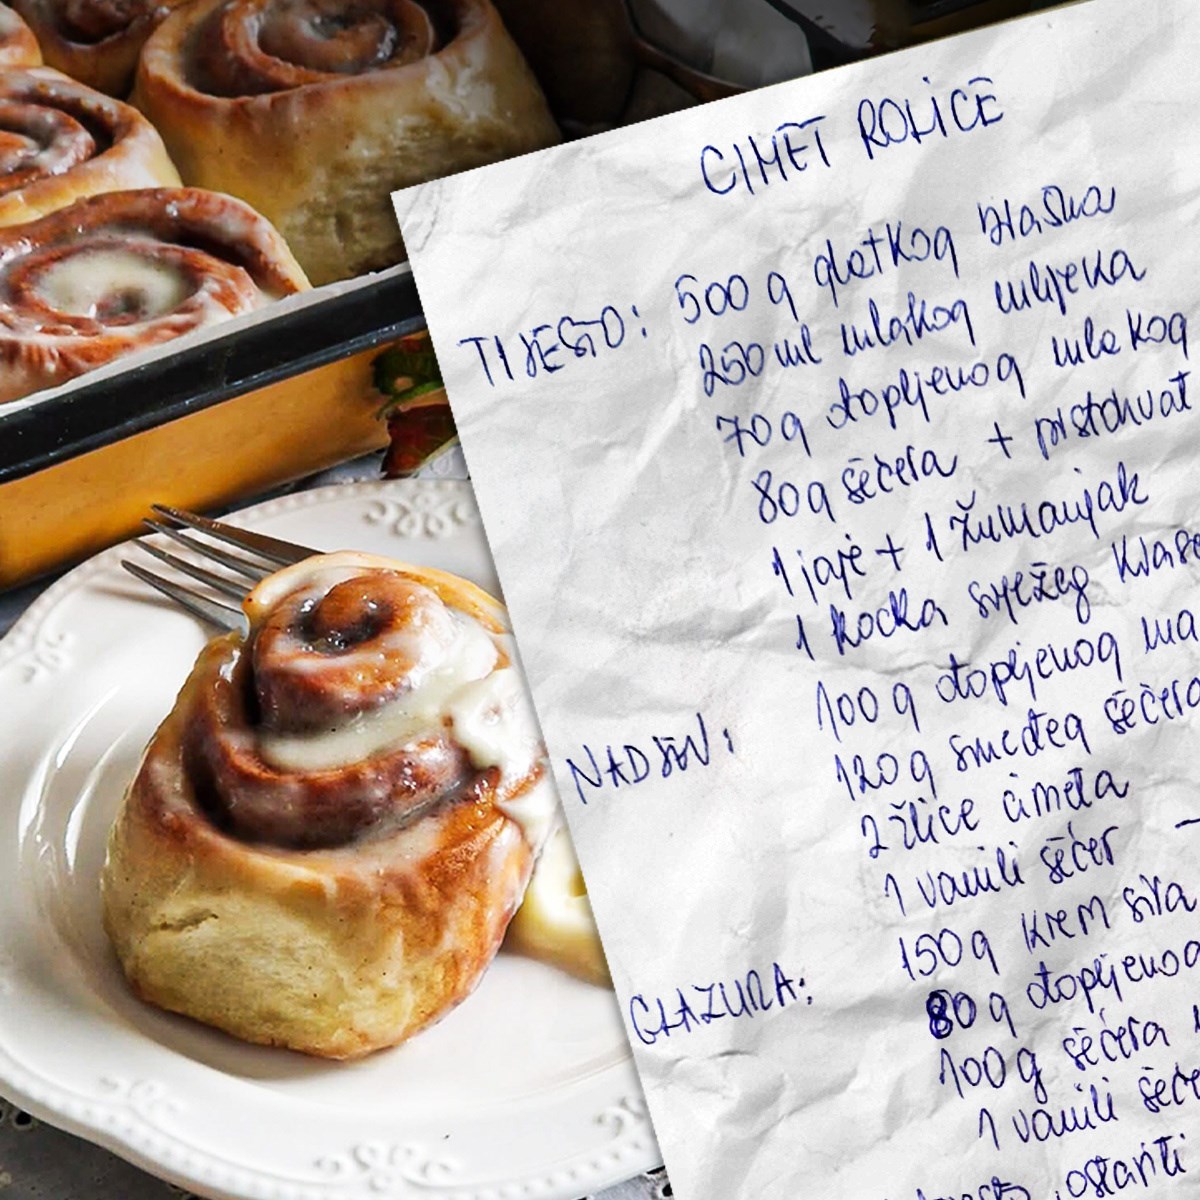 CIMET ROLICE
TIJESTO: 500 g glatkog brašna
250 ml mlakog mlijeka
70 g otopljenog mlakog
80 g šećera + prstohvat
1 jaje + 1 žumanjak
1 kocka svježeg kvasc
NADJEV: 100 g otopljenog ma
120 g smeđeg šećera
2 žlice cimeta
1 vanili šećer -
GLAZURA: 150 g krem sira
80 g otopljenog
100 g šećera
1 vanili šeće
ostaviti